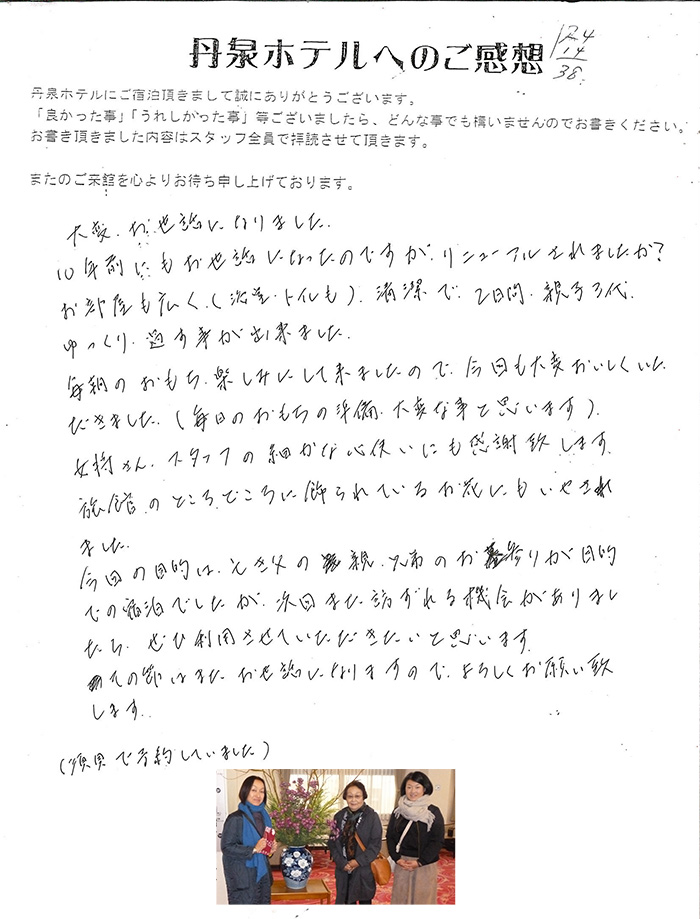 丹泉ホテルへのご感想
R4
14
38
丹泉ホテルにご宿泊頂きまして誠にありがとうございます。
「良かった事」「うれしかった事」等ございましたら、どんな事でも構いませんのでお書きください。
お書き頂きました内容はスタッフ全員で拝読させて頂きます。
またのご来館を心よりお待ち申し上げております。
大変、お世話になりました。
10年前にもお世話になったのですが、リニューアルされましたか?
お部屋も広く、(洗室・トイレも)、清潔で、2日間、親子3代、
ゆっくり、過す事が出来ました。
毎朝のおもち、楽しみにして来ましたので、今回も大変おいしくいた
だきました。(毎日のおもちの準備、大変な事と思います)。
女将さん、スタッフの細かな心使いにも感謝致します。
旅館のところどころに飾られているお花にもいやされ
ました。
今回の目的は、亡き父の親、兄弟のお墓参りが目的
での宿泊でしたが、次回また訪ずれる機会がありまし
たら、ぜひ利用させていただきたいと思います。
その節はまたお世話になりますので、よろしくお願い致
します。
(須貝で予約していました)